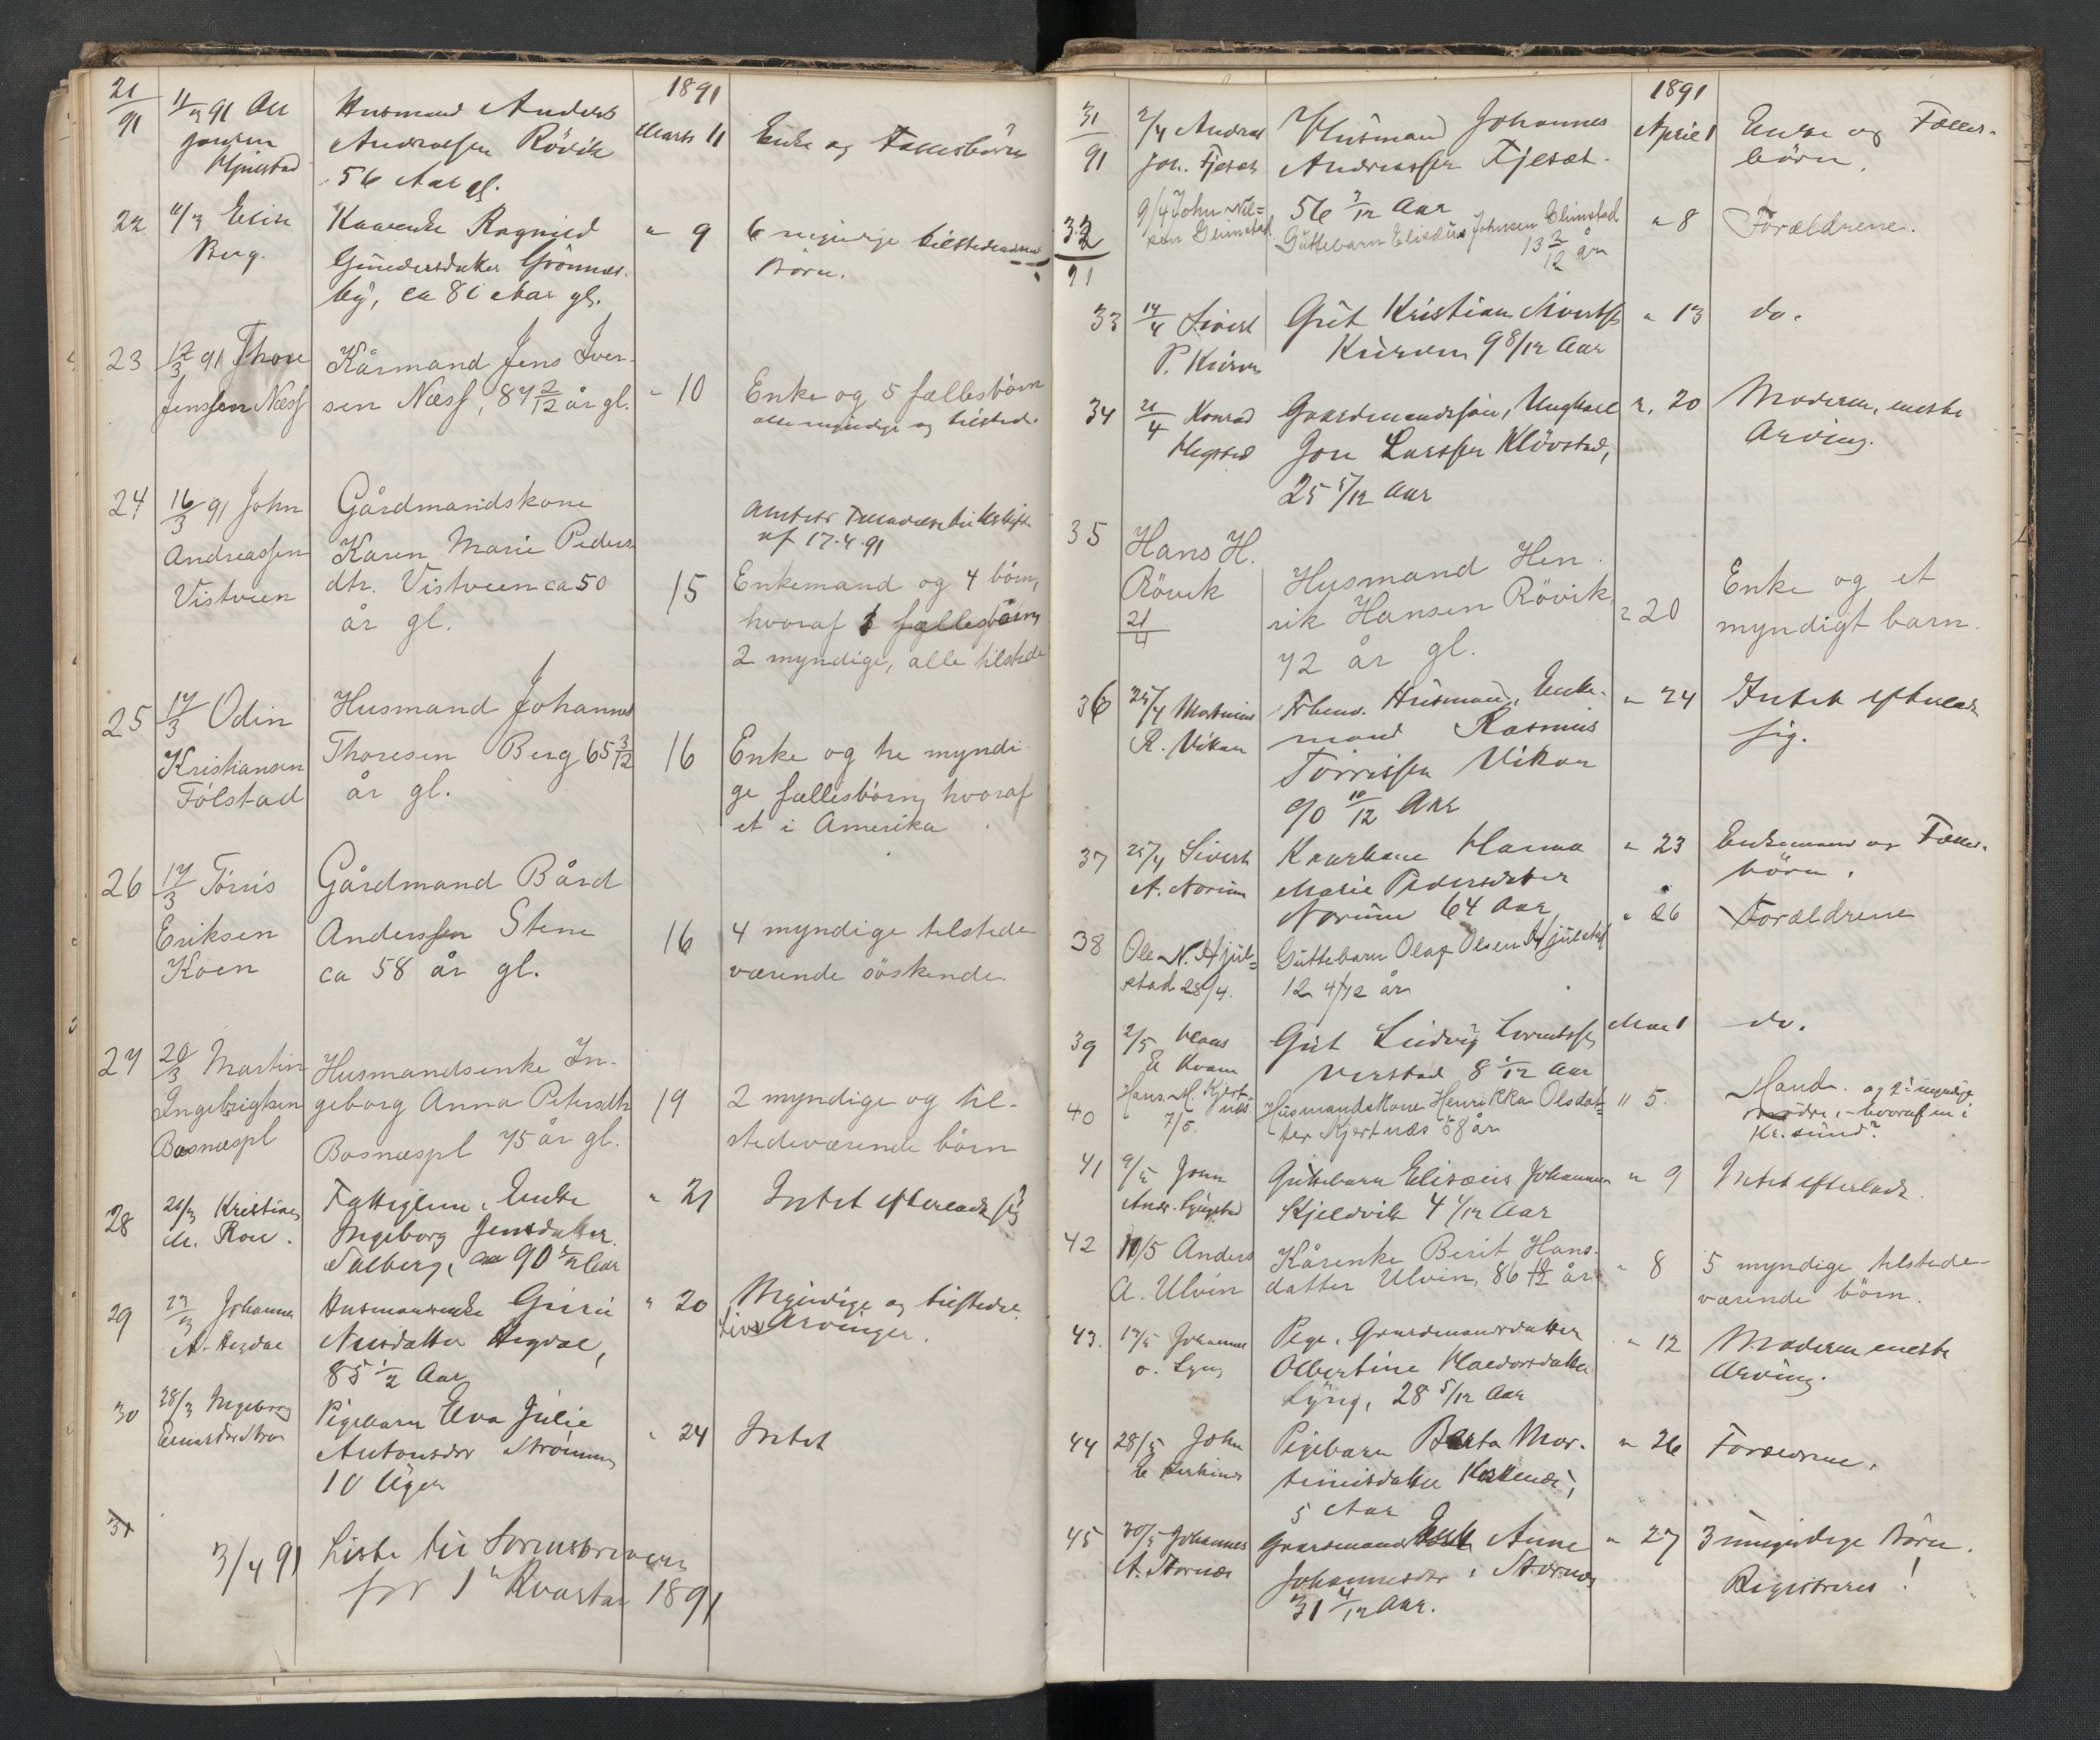 1891
21/91
11/3 91
Husmand Anders
Marts 11
Enke og Fællesbörn
Andreassen Rövik
56 Aar gl.
22
11/3 Elisa
Berg.
Kaarenke Ragnild
" 9
6 myndige tilstedeværende
Börn.
by, ca 81 Aar gl.
23
12/3 91 Thore
Jenssen Næss
Kårmand Jens Iver-
sen Næss, 87 2/12 år gl.
" 10
Enke og 5 fællesbörn
alle myndige og tilstede.
24
16/3 91 John
Andreassen
Vistveen
Gårdmandskone
Karen Marie Peders
dtr. Vistveen ca 50
år gl.
15
af 17.4.91
Enkemand og 4 börn,
hvoraf fællesbörn,
2 myndige, alle tilstede
25
17/3 Odin
Kristiansen
Tölstad
Husmand Johannes
Thoresen Berg 65 3/12
år gl.
16
Enke og tre myndi-
ge fællesbörn, hvoraf
et i Amerika
26
17/3 Törris
Eriksen
Koen
Gårdmand Bård
Anderssen Stene
ca 58 år gl.
16
4 myndige tilstede
værende söskende.
27
20/3 Martin
Ingebrigtsen
Bosnæspl
Husmandsenke In-
geborg Anna Petersdtr
Bosnæspl 75 år gl.
19
2 myndige og til-
stedeværende börn
28
21/3 Kristian
M. Roee.
Fattiglem, Enke
Ingeborg Jensdatter
Salberg, 90 1/2 Aar
" 21
Intet efterladt sig
29
23/3 Johannes
A. Hegdal
Husmandsenke Guru
Nilsdatter Hegdal,
85 1/2 Aar
" 20
Myndige og tilstede
Arvinger.
30
28/3 Ingeborg
Pigebarn Elva Julie
Antonsdtr Strömmen
10 Uger
" 24
Intet
31
3/4 91 Liste til Sorenskriveren
for 1ste Kvartal 1891
1891
31/91
2/4 Andreas
Joh. Fjesæt
Husmand Johannes
Andreassen Fjesæt.
56 3/12 Aar
April 1
Enke og Fælles-
börn.
32/91
9/4 John Nil-
sen Glimstad
Guttebarn Elisæus Johnsen Glimstad
13 2/12 år
" 8
Forældrene.
33
14/4 Sivert
P. Kurven
Gut Kristian Sivertss
Kurven 9 8/12 Aar
" 13
do.
34
21/4 Konrad
Gaardmandssön, Ungkarl
Jon Larssen Klövstad,
25 5/12 Aar
" 20
Moderen, eneste
Arving.
35
Hans H.
Rövik
21/4
Husmand Hen-
rik Hansen Rövik
72 år gl.
" 20
Enke og et
myndigt barn.
36
25/4 Martinus
R. Vikan
Husmand, Enke-
mand Rasmus
Törrissen Vikan
90 10/12 Aar
" 24
Intet efterladt
sig.
37
25/4 Sivert
A. Norum
Kaarkone Hanna
Marie Pedersdatter
Norum 64 Aar
" 23
Enkemand og Fælles-
börn.
38
Ole N. Hjul-
stad 28/4.
Guttebarn Olaf Olsen Hjulstad
12 4/12 år
" 26
Forældrene
39
2/5 Klaus
E. Kvam
Gut Ludvig Lorntss
Verstad 8 1/12 Aar
Mai 1
do.
40
Hans M. Kjert-
næs
7/5.
Husmandskone Henrikka Olsdat-
ter Kjertnæs 58 år
" 5.
Mand. og 2 myndige
hvoraf en i
Kr.sund?
41
9/5 John
Andr. Ljugstad
Guttebarn Elisæus Johannes
Kjeldvik 4 1/12 Aar
" 9
Intet efterladt.
42
11/5 Anders
A. Ulvin
Kårenke Berit Hans-
datter Ulvin, 86 år
" 8
5 myndige tilstede-
værende börn.
43.
13/5 Johannes
O. Lyng
Pige, Gaardmandsdatter
Olbertine Haldorsdatter
Lyng, 28 5/12 Aar
" 12
Moderen eneste
Arving.
44
28/5 John
Pigebarn Berta Mar-
tinusdatter
5 Aar
" 26
Forældrene.
45
30/5 Johannes
A. Stornæs
Gaardmandsenke Anne
Johannesdtr. Stornæs
31 4/12 Aar.
" 27
3 umyndige Börn.
Registreres!